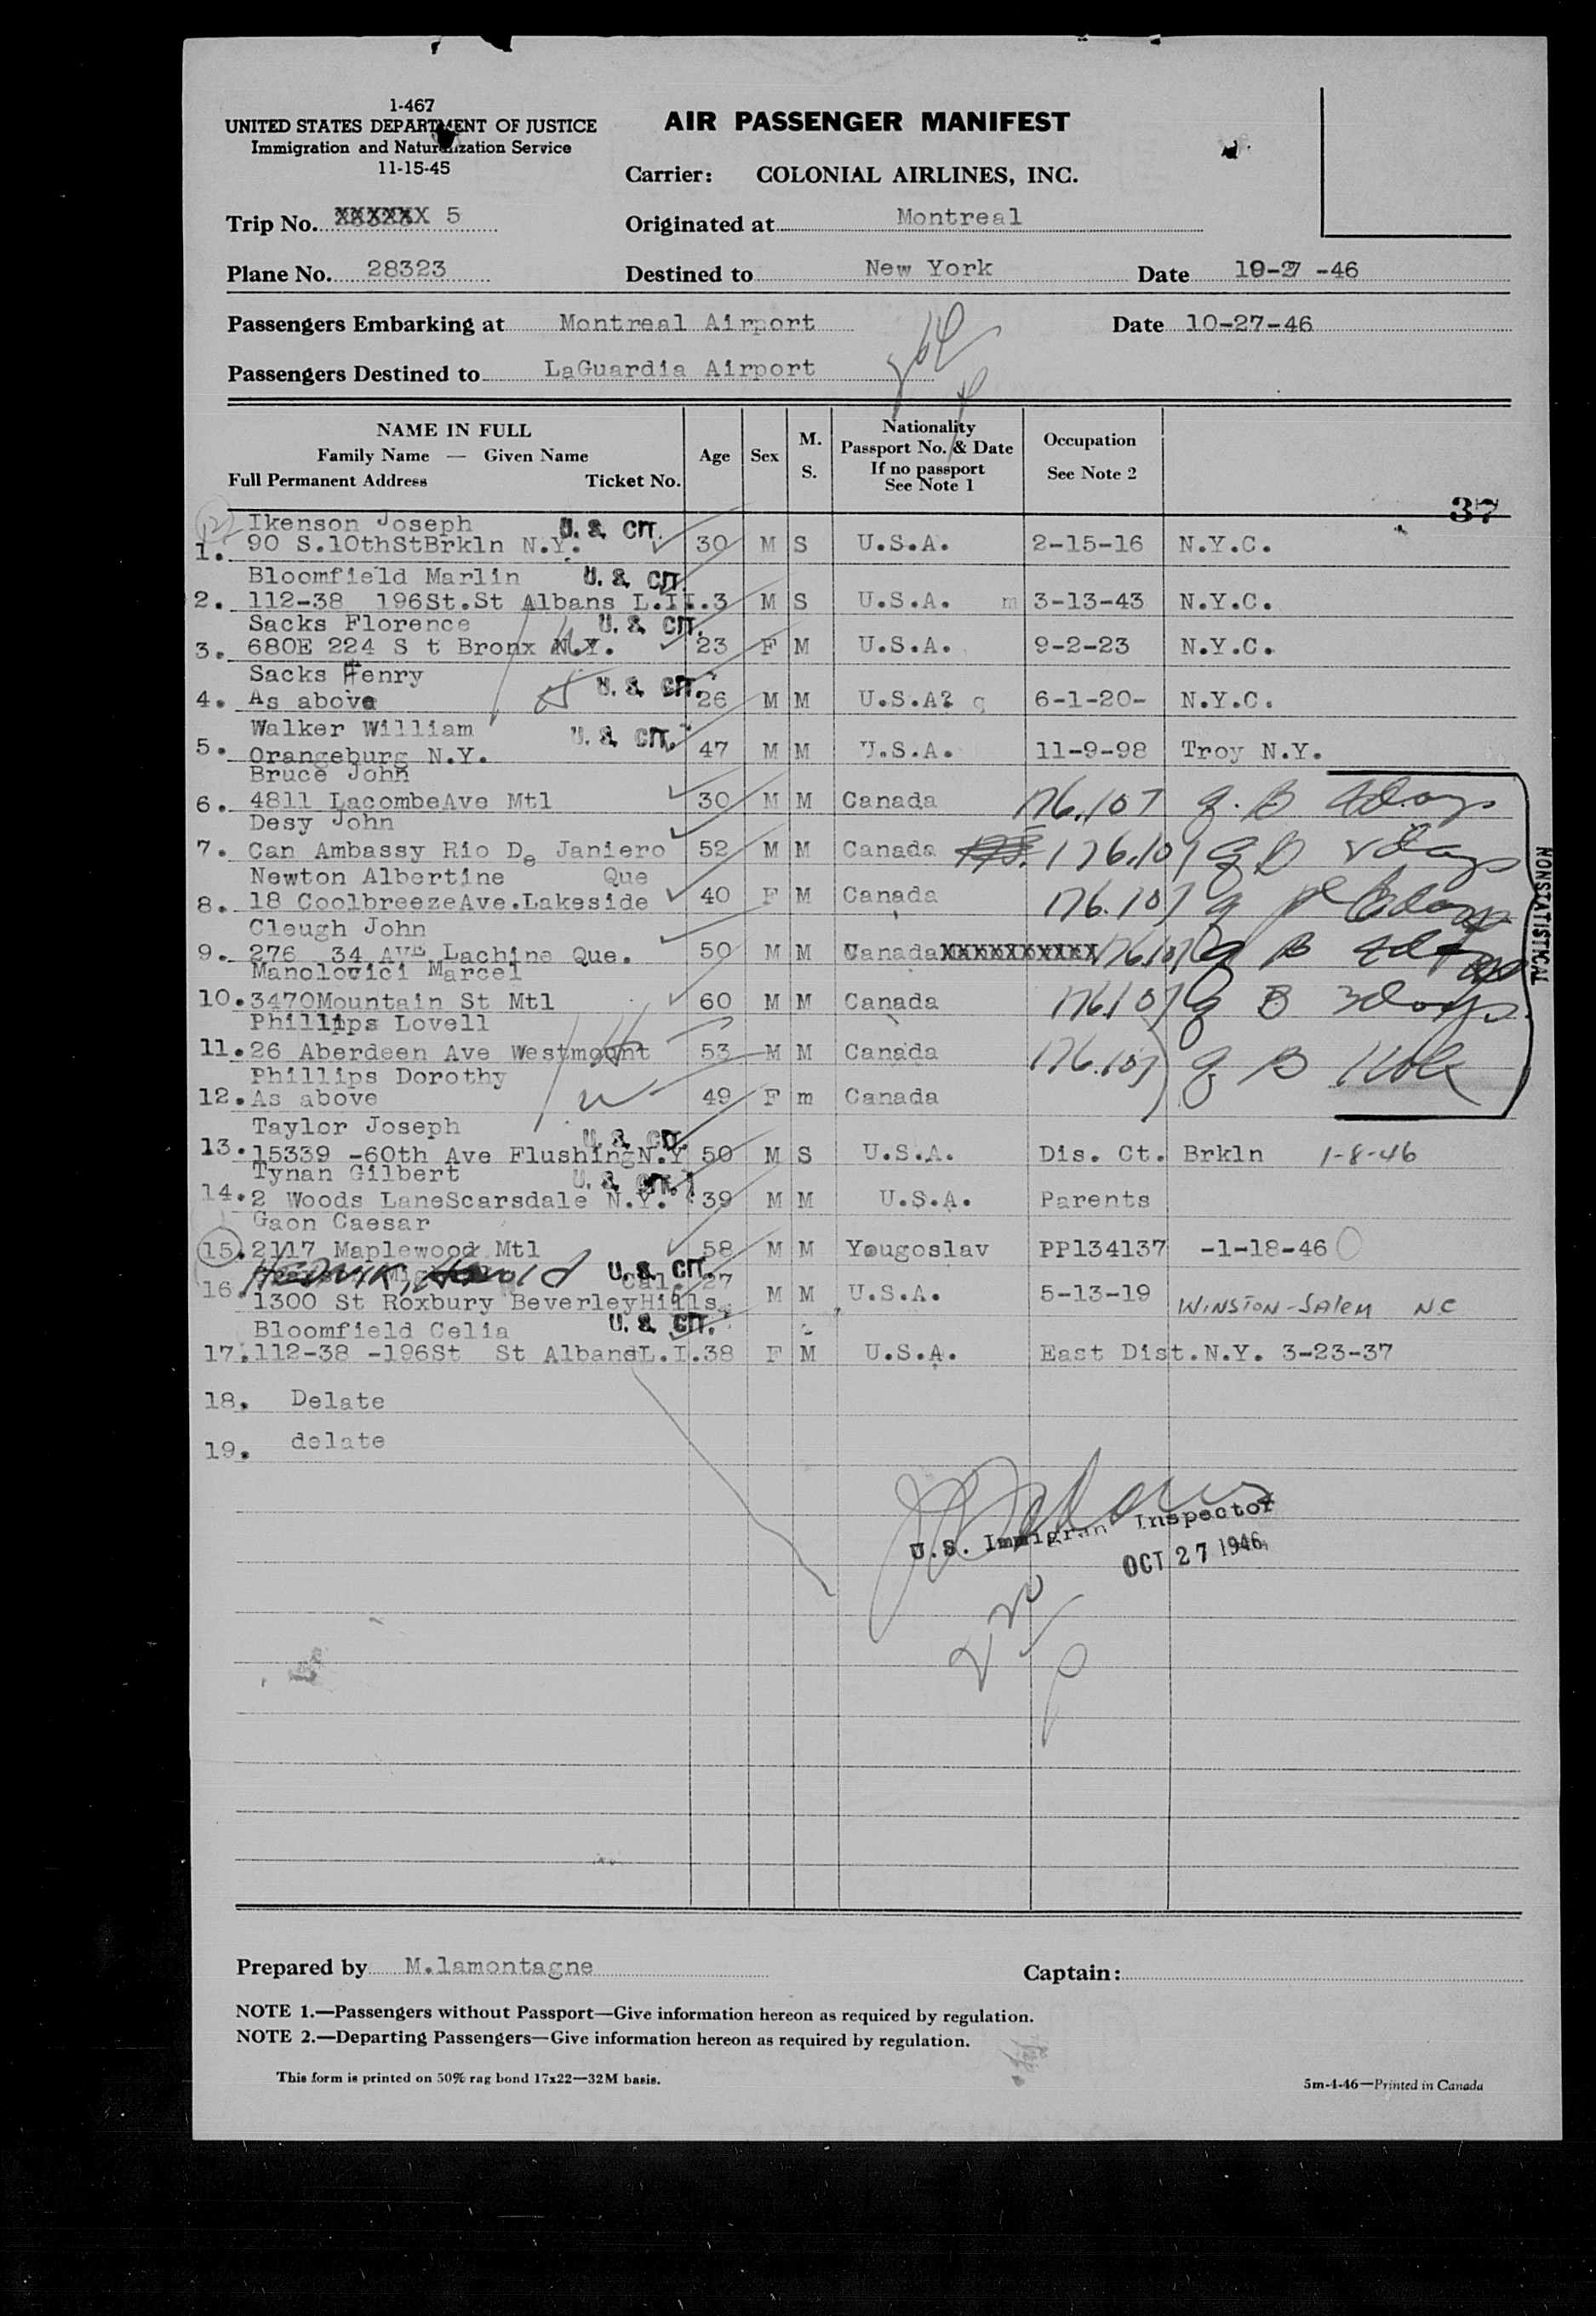 1-467
UNITED STATES DEPARTMENT OF JUSTICE
Immigration and Naturalization Service
11-15-45
AIR PASSENGER MANIFEST
Carrier: COLONIAL AIRLINES, INC.
Trip No. XXXXXX 5
Originated at Montreal
Plane No. 28323
Destined to New York
Date 10-27 -46
Passengers Embarking at Montreal Airport
Date 10-27-46
Passengers Destined to LaGuardia Airport
NAME IN FULL
Family Name — Given Name
Full Permanent Address Ticket No.
Age
Sex
M.
S.
Nationality
Passport No. & Date
If no passport
See Note 1
Occupation
See Note 2
37
Ikenson Joseph U. S. CIT.
1. 90 S.10thStBrkln N.Y. 30 M S U.S.A. 2-15-16 N.Y.C.
Bloomfield Marlin U. S. CIT.
2. 112-38 196St.St Albans L.I.3 M S U.S.A. m 3-13-43 N.Y.C.
Sacks Florence U. S. CIT.
3. 680E 224 S t Bronx N.Y. 23 F M U.S.A. 9-2-23 N.Y.C.
Sacks Henry U. S. CIT.
4. As above 26 M M U.S.A 6-1-20- N.Y.C.
Walker William U. S. CIT.
5. Orangeburg N.Y. 47 M M U.S.A. 11-9-98 Troy N.Y.
Bruce John
6. 4811 LacombeAve Mtl 30 M M Canada 176.107 B 4days
Desy John
7. Can Ambassy Rio De Janiero 52 M M Canada 176.107 B days
Newton Albertine Que
8. 18 CoolbreezeAve.Lakeside 40 F M Canada 176.107 days
Cleugh John
9. 276 34 AVE Lachine Que. 50 M M Canada XXXXXXXXXX 176.107 B
Manolovici Marcel
10. 3470Mountain St Mtl 60 M M Canada 176.107 B 3days
Phillips Lovell
11. 26 Aberdeen Ave Westmount 53 M M Canada 176.107 B
Phillips Dorothy
12. As above 49 F m Canada
NONSTATISTICAL
Taylor Joseph U. S. CIT.
13. 15339 -60th Ave FlushingN.Y 50 M S U.S.A. Dis. Ct. Brkln 1-8-46
Tynan Gilbert U. S. CIT.
14. 2 Woods LaneScarsdale N.Y. 39 M M U.S.A. Parents
Gaon Caesar
15. 2117 Maplewood Mtl 58 M M Yougoslav PP134137 -1-18-46
HEDRICK, Harold U. S. CIT.
16. Cal. 27 M M U.S.A. 5-13-19 WINSTON-SALEM NC
1300 St Roxbury BeverleyHills
Bloomfield Celia U. S. CIT.
17. 112-38 -196St St AlbansL.I.38 F M U.S.A. East Dist.N.Y. 3-23-37
18. Delate
19. delate
U.S. Immigrant Inspector
OCT 27 1946
Prepared by M.lamontagne
Captain:
NOTE 1.—Passengers without Passport—Give information hereon as required by regulation.
NOTE 2.—Departing Passengers—Give information hereon as required by regulation.
This form is printed on 50% rag bond 17x22—32M basis.
5m-4-46—Printed in Canada